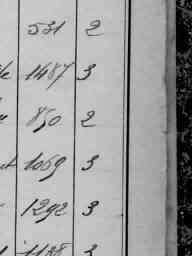 531 2
1487 3
850 2
1069 3
1292 3
1138 3